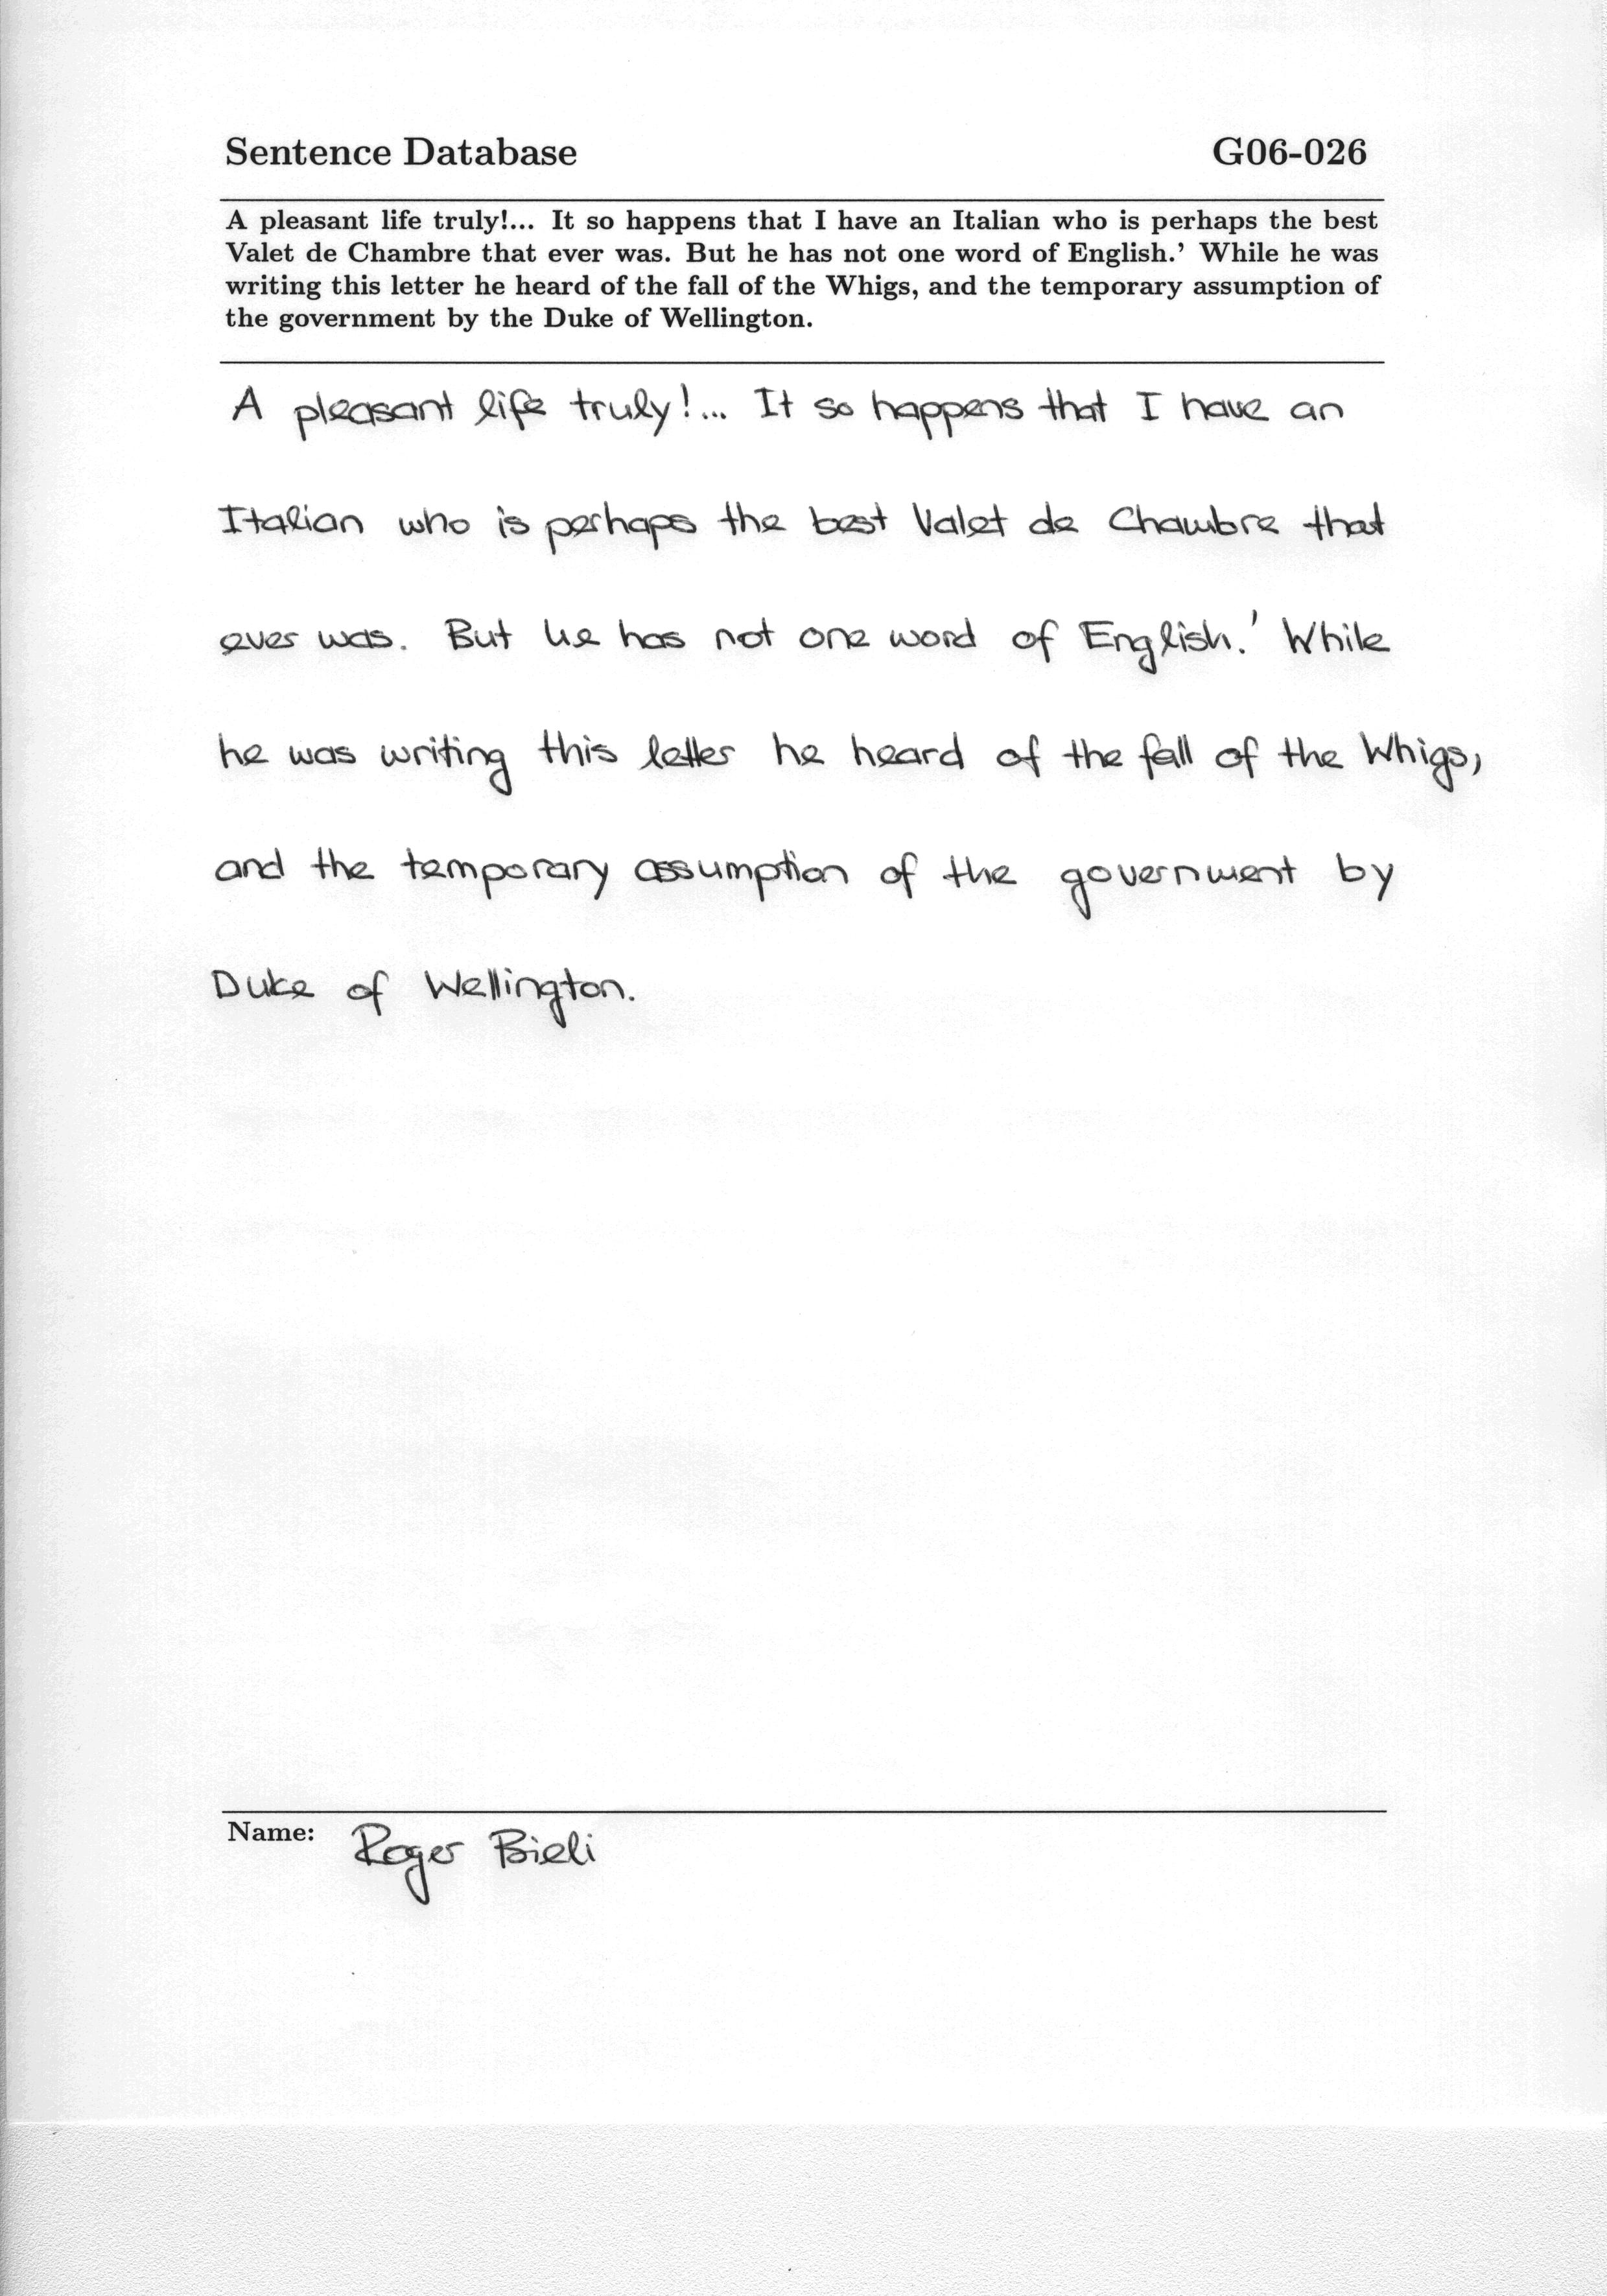 Sentence Database G06-026
A pleasant life truly!... It so happens that I have an Italian who is perhaps the best
Valet de Chambre that ever was. But he has not one word of English.' While he was
writing this letter he heard of the fall of the Whigs, and the temporary assumption of
the government by the Duke of Wellington.
A pleasant life truly!... It so happens that I have an
Italian who is perhaps the best Valet de Chambre that
ever was. But he has not one word of English.' While
he was writing this letter he heard of the fall of the Whigs,
and the temporary assumption of the government by
Duke of Wellington.
Name: Roger Bieli